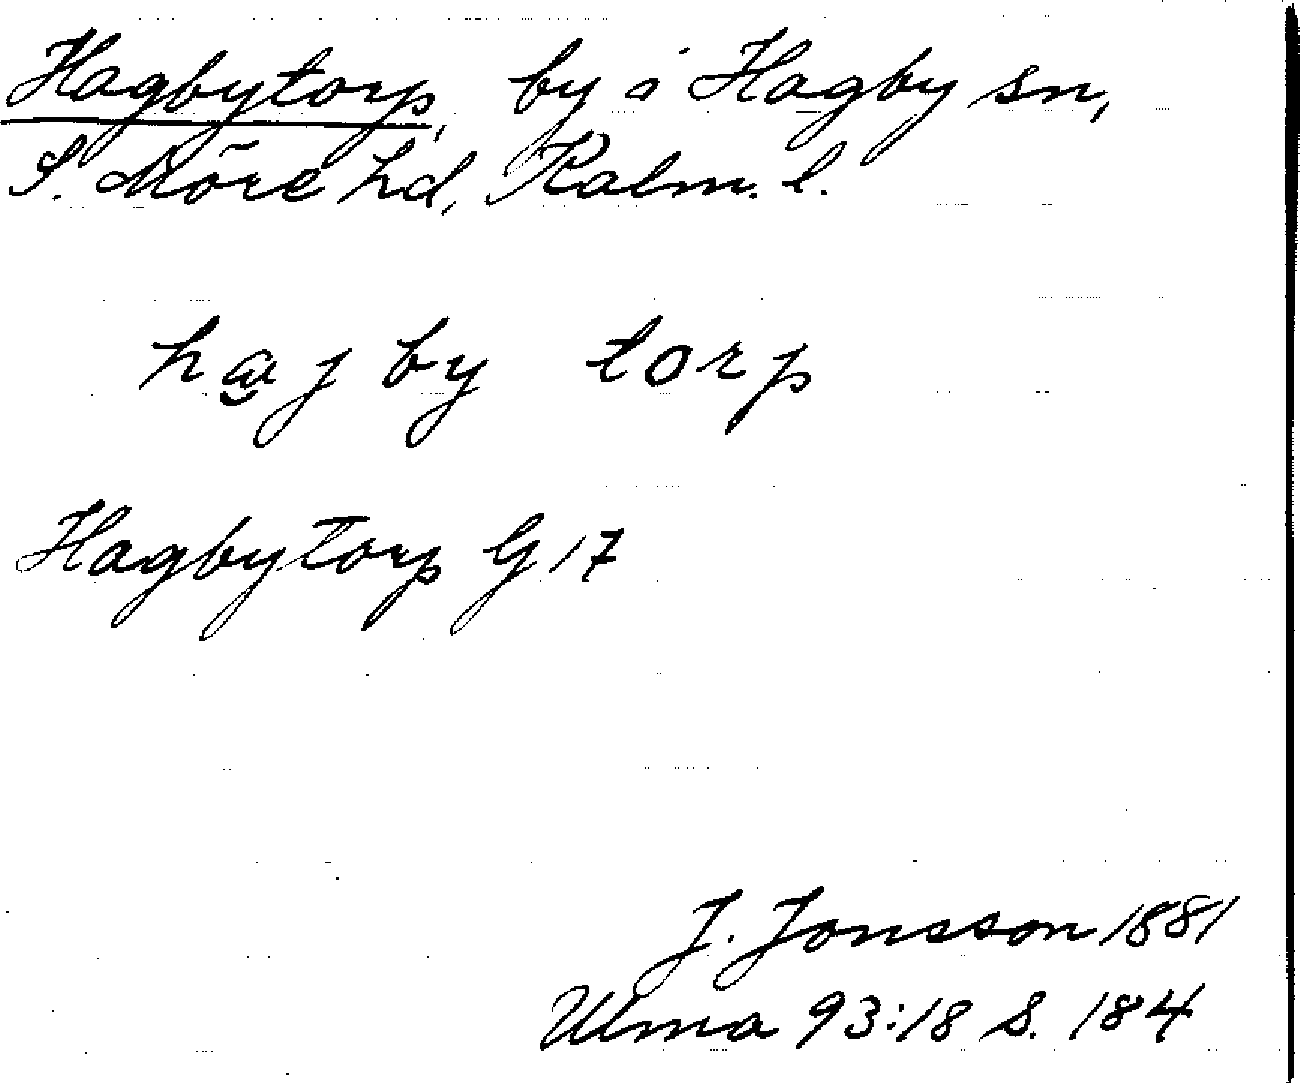 Hagbytorp, by i Hagby sn,
S. Möre hd, Kalm. l.
hajby torp
Hagbytorp G 17
J. Jonsson 1881
Ulma 93:18 S. 184